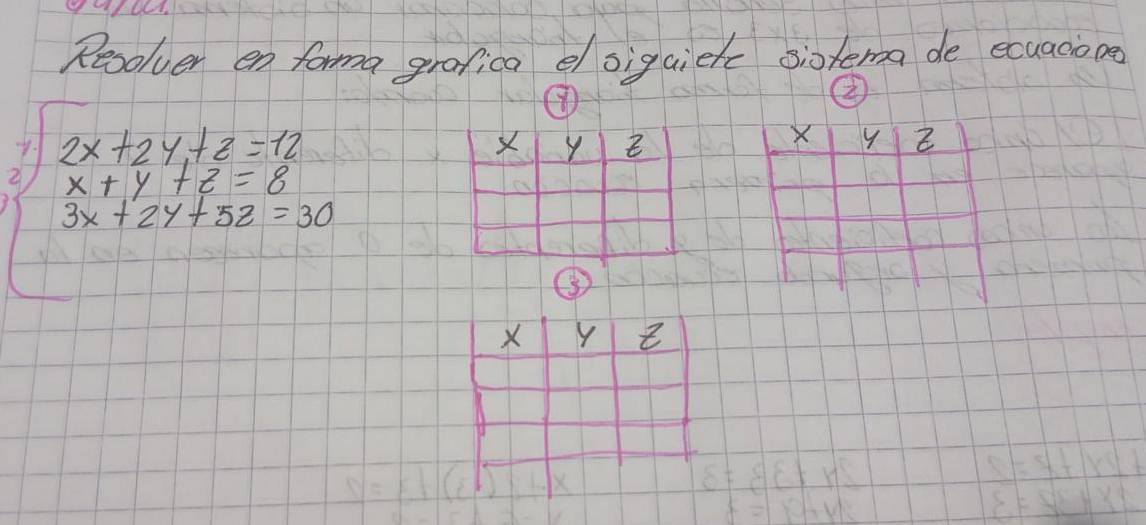 Resolver en forma grafica el siguiete sistema de ecuaciones
1 2
1. 2x+2y+z=12
2 x+y+z=8
3 3x+2y+5z=30
x y z
x y z
3
x y z